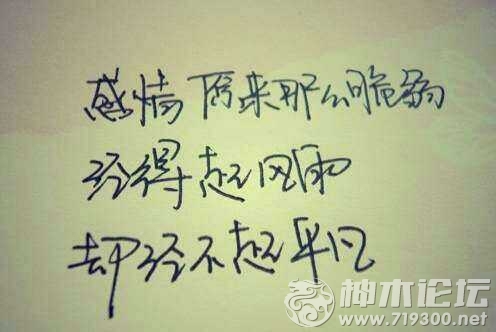 感情原来那么脆弱
经得起风雨
却经不起平凡
神木论坛
www.719300.net